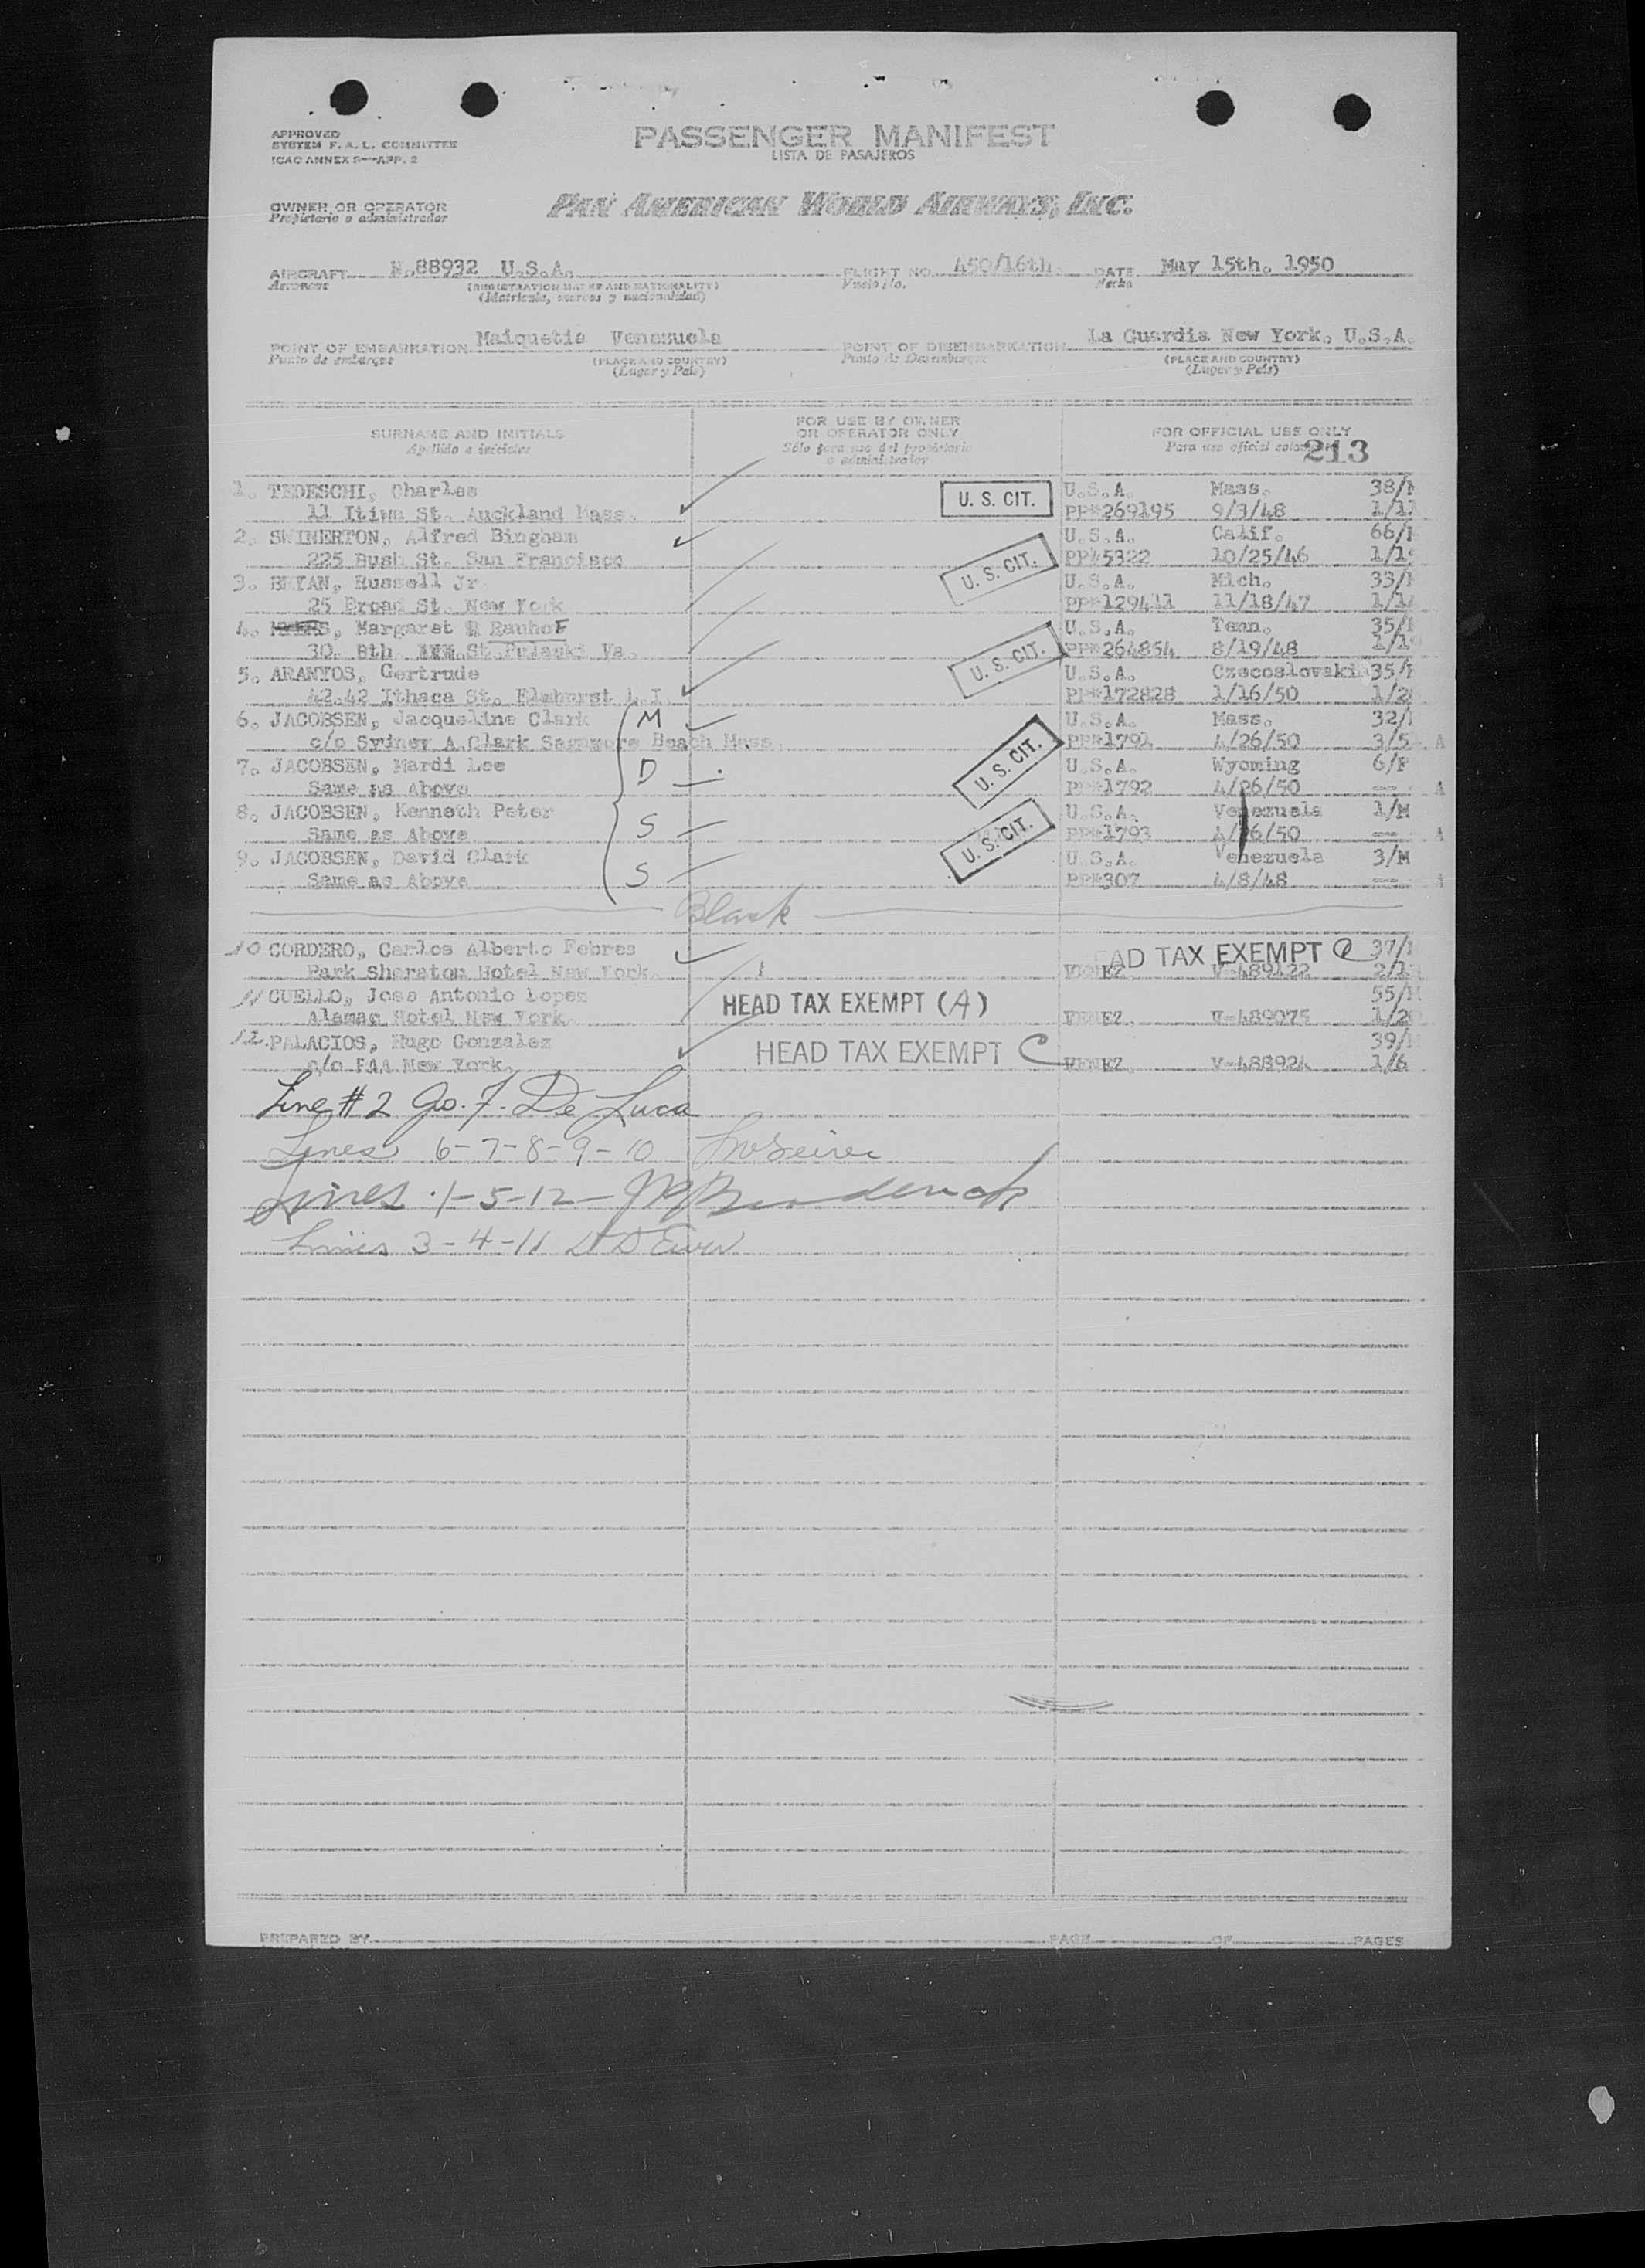 APPROVED
SYSTEM F. A. L. COMMITTEE
ICAO ANNEX 9—APP. 2
PASSENGER MANIFEST
LISTA DE PASAJEROS
OWNER OR OPERATOR
Propietario o administrador
PAN AMERICAN WORLD AIRWAYS, INC.
AIRCRAFT N.88932 U.S.A. FLIGHT NO. 450/16th DATE May 15th. 1950
Aeronave (REGISTRATION MARKS AND NATIONALITY) Vuelo No. Fecha
(Matrícula, marcas y nacionalidad)
POINT OF EMBARKATION Maiquetia Venezuela POINT OF DISEMBARKATION La Guardia New York. U.S.A.
Punto de embarque (PLACE AND COUNTRY) Punto de Desembarque (PLACE AND COUNTRY)
(Lugar y País) (Lugar y País)
SURNAME AND INITIALS FOR USE BY OWNER OR OPERATOR ONLY FOR OFFICIAL USE ONLY
Apellido e iniciales Sólo para uso del propietario o administrador Para uso oficial 213
1. TEDESCHI, Charles U. S. CIT. U.S.A. Mass. 38/
11 St. Auckland Mass. PP#269195 9/3/48
2. SWINERTON, Alfred Bingham U.S.A. Calif. 66/
225 Bush St. San Francisco U. S. CIT. PP#5322 10/25/46
3. BRYAN, Russell Jr U.S.A. Mich. 33/
25 Broad St. New York 11/18/47
4. Margaret Rauhof U.S.A. Tenn. 35/
30. 8th St. Pulaski Va. U. S. CIT. PP#264854 8/19/48
5. ARANYOS, Gertrude U.S.A. Czecoslovakia 35/
42.42 Ithaca St. Elmhurst L.I. PP#172828 1/16/50
6. JACOBSEN, Jacqueline Clark M U.S.A. Mass. 32/
c/o Sydney A.Clark Sagamore Beach Mass. PP#1791 4/26/50 3/5 A
7. JACOBSEN, Mardi Lee D U. S. CIT. U.S.A. Wyoming 6/F
Same as Above PP#1792 4/26/50 --- A
8. JACOBSEN, Kenneth Peter S U.S.A. Venezuela 1/M
Same as Above U. S. CIT. PP#1793 4/26/50 --- A
9. JACOBSEN, David Clark S U.S.A. Venezuela 3/M
Same as Above PP#307 4/8/48 ---
Blank
10 CORDERO, Carlos Alberto Febres EAD TAX EXEMPT C 37/
Park Sheraton Hotel New York. VENEZ. V-489122
11 CUELLO, Jose Antonio Lopez HEAD TAX EXEMPT (A) 55/
Alamac Hotel New York. VENEZ. V-489075 1/20
12. PALACIOS, Hugo Gonzalez HEAD TAX EXEMPT C 39/
c/o PAA New York. VENEZ. V-488924 1/6
Line # 2 Jo. F. De Luca
Lines 6-7-8-9-10
Lines 1-5-12-
Lines 3-4-11
PREPARED BY PAGE OF PAGES